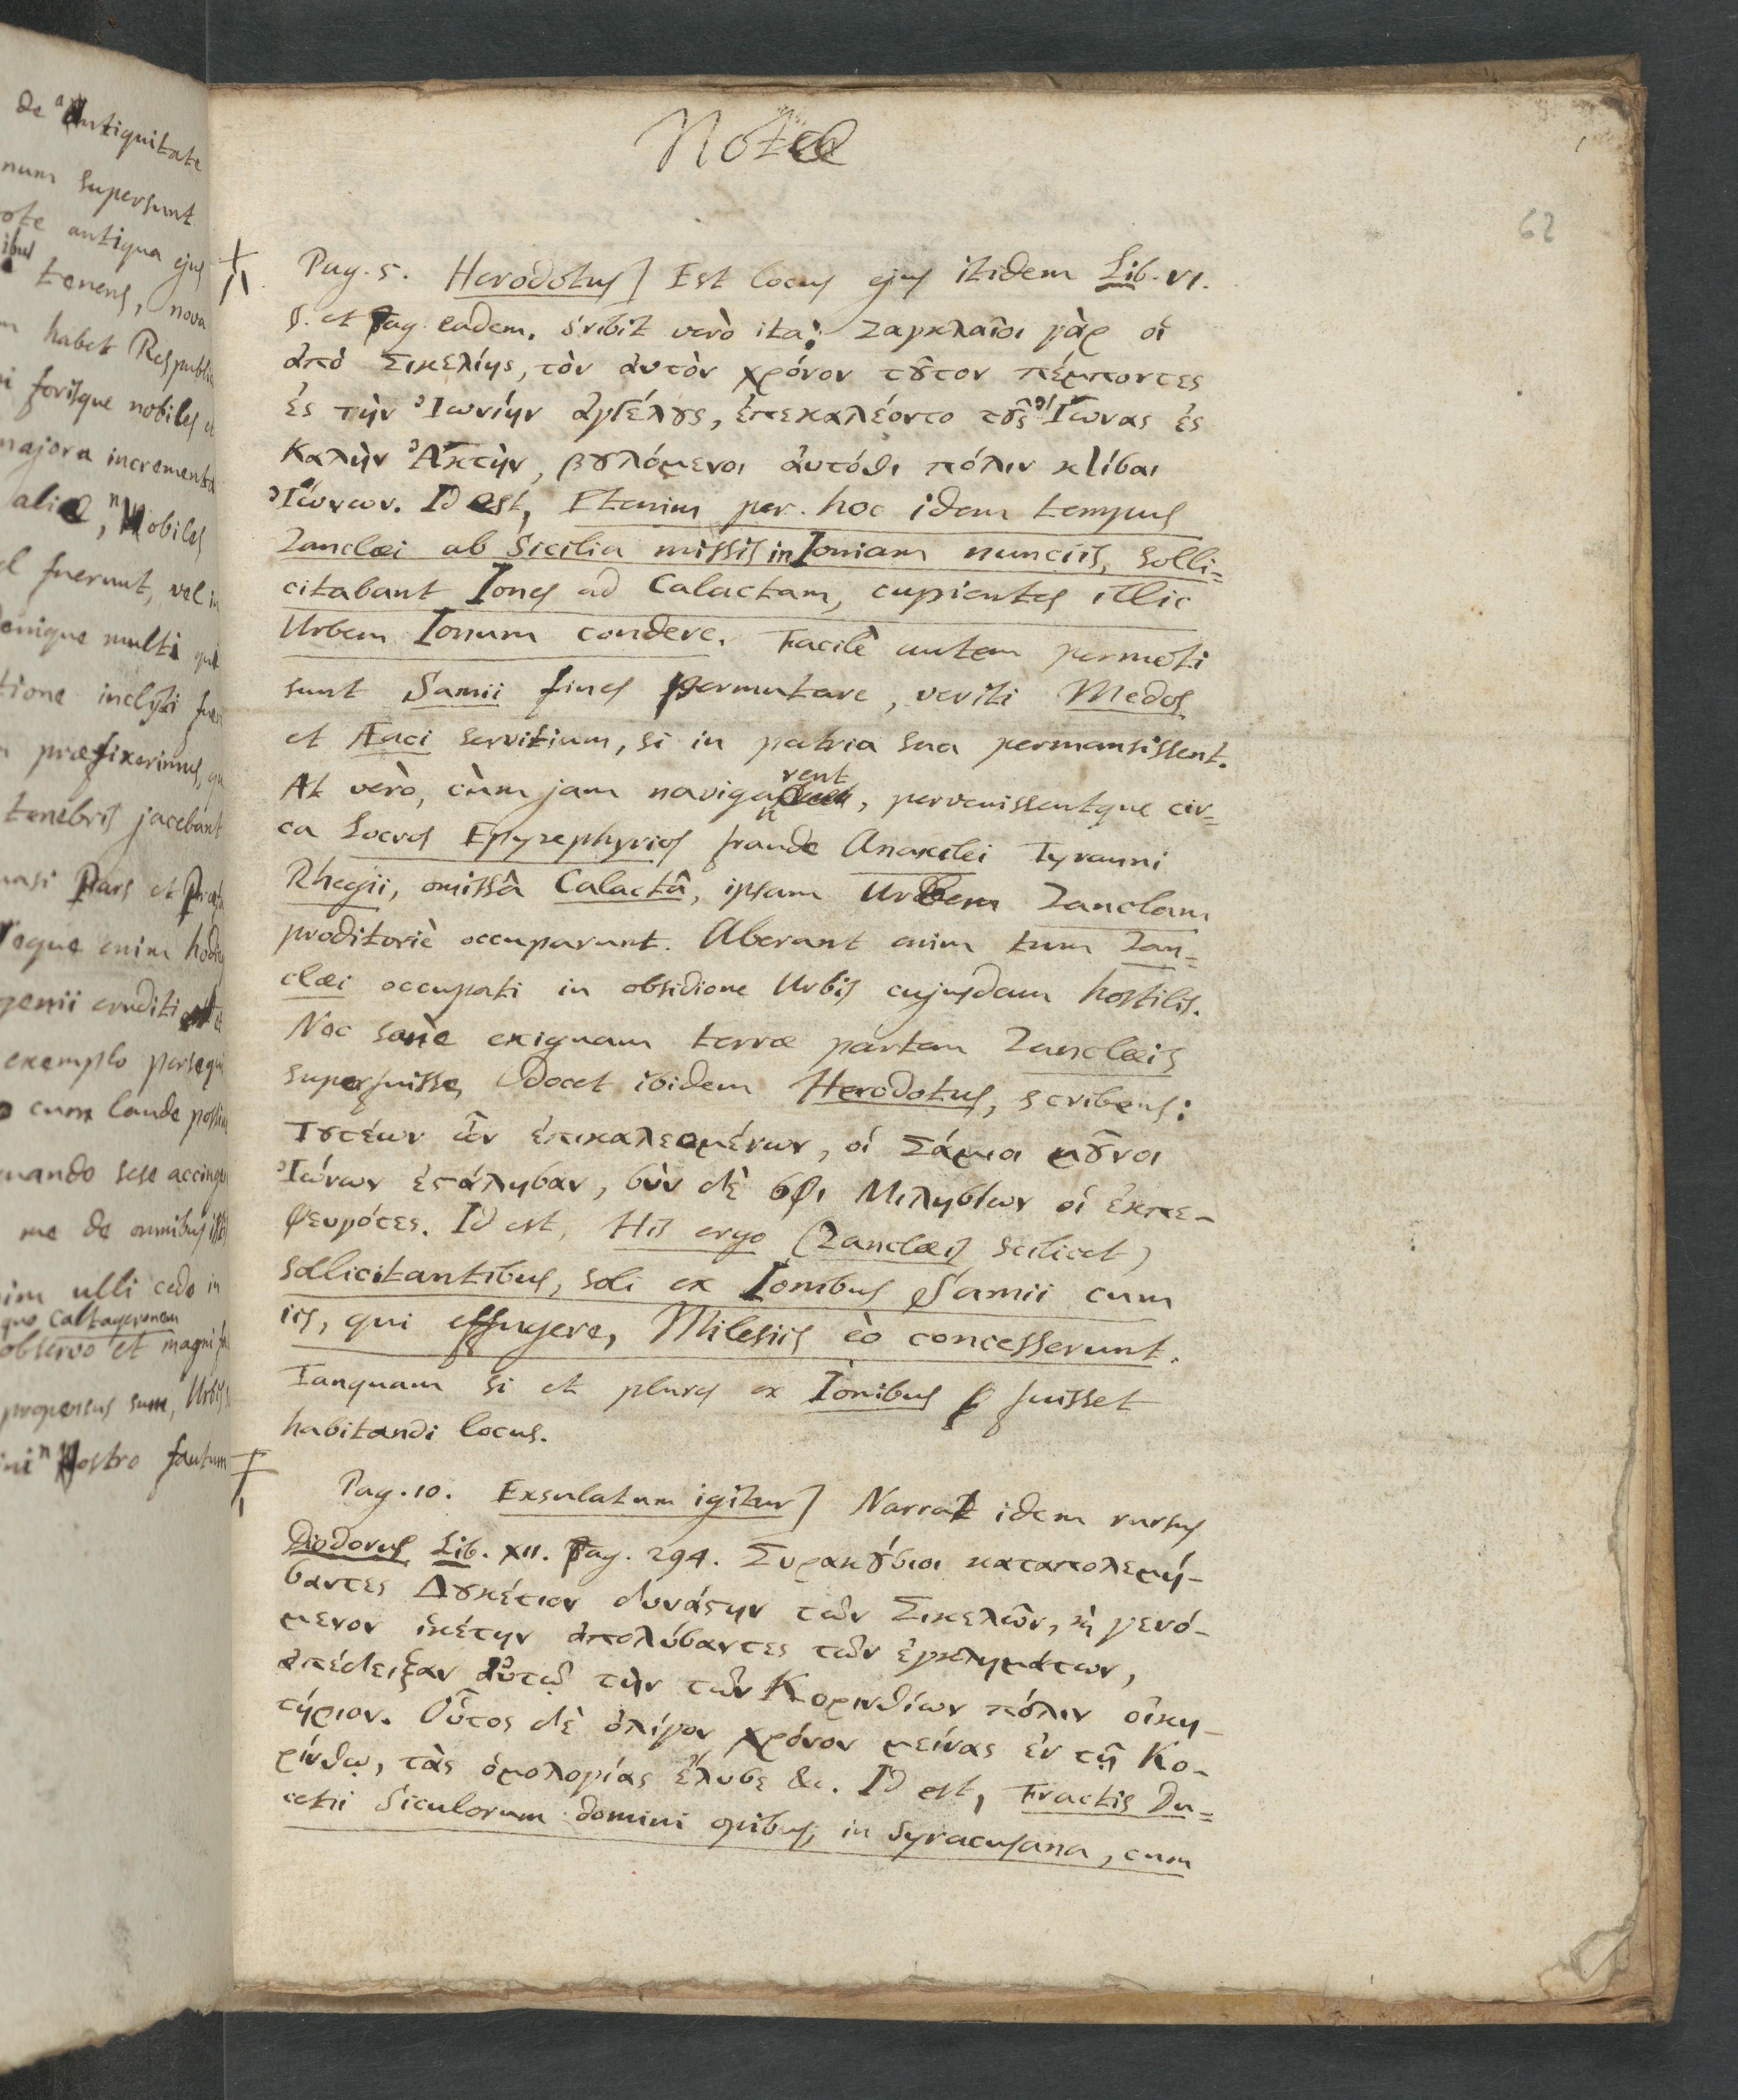 de antiquitate
num supersunt
ote antiqua ejus
ibus
tenens, nova
habet Respubli
forisque nobiles et
majora incrementa
aliæ, nobiles
l fuerunt, vel in
denique multi qui
tione inclyti fue
præfixerimus, qu
tenebris jacebant
uasi Pars et
eque enim hodie
genii eruditi et
exemplo persequi
cum laude possim
uando sese accinge
me de omnibus
im ulli cedo in
quo Caltagironem
observo et magni
propensus sum, Urbis
nostro fautum
Notæ
62
Pag. 5. Herodotus] Est locus ejus itidem Lib. VI.
§. et pag. eadem. Sribit verò ita: Ζαγκλαῖοι γὰρ οἱ
ἀπὸ Σικελίης, τὸν ἀυτὸν χρόνον τȣ͂τον πέμποντες
ἐς τὴν Ἰωνίην ἀγγέλȣς, ἐπεκαλέοντο τȣ̀ς Ἴωνας ἐς
Καλὴν Ἀκτὴν, βȣλόμενοι ἀυτόθι πόλιν κτίσαι
Ἰώνων. Id est, Etenim per hoc idem tempus
Zanclæi ab Sicilia missis in Ioniam nunciis, solli=
citabant Iones ad Calactam, cupientes illic
Urbem Ionum condere. Facilè autem permoti
sunt Samii fines permutare, veriti Medos
et Æaci servitium, si in patria sua permansissent.
At verò, cùm jam navigarent, pervenissentque cir=
ca Locros Epyzephyrios fraude Anaxilei Tyranni
Rhegii, omissâ Calactâ, ipsam Urbem Zanclam
proditoriè occuparunt. Aberant enim tum Zan=
clæi occupati in obsidione Urbis cujusdam hostilis.
Nec sanè exiguam terræ partem Zanclæis
superfuisse, docet ibidem Herodotus, scribens:
Τȣτέων ὦν ἐπικαλεομένων, οἱ Σάμιοι μȣ͂νοι
Ἰώνων ἐστάλησαν, σὺν δὲ σφι Μιλησίων οἱ ἐκπε-
φευγότες. Id est, His ergo (Zanclæis scilicet)
sollicitantibus, soli ex Ionibus Samii cum
iis, qui effugere, Milesiis eò concesserunt.
Tanquam si et plures ex Ionibus fuisset
habitandi locus.
Pag. 10. Exsulatum igitur] Narrat idem rursus
Diodorus Lib. XII. Pag. 294. Συρακȣ́σιοι καταπολεμή-
σαντες Δȣκέτιον δυνάστην τῶν Σικελῶν, ϗ γενό-
μενον ἱκέτην ἀπολύσαντες τῶν ἐγκλημάτων,
ἀπέδειξαν ἀυτῷ τὴν τῶν Κορινθίων πόλιν οἰκη-
τήριον. Οὗτος δὲ ὀλίγον χρόνον μείνας ἐν τῇ Κο-
ρίνθῳ, τὰς ὁμολογίας ἔλυσε &c. Id est, Fractis Du=
cetii Siculorum domini opibus, in Syracusana, cum